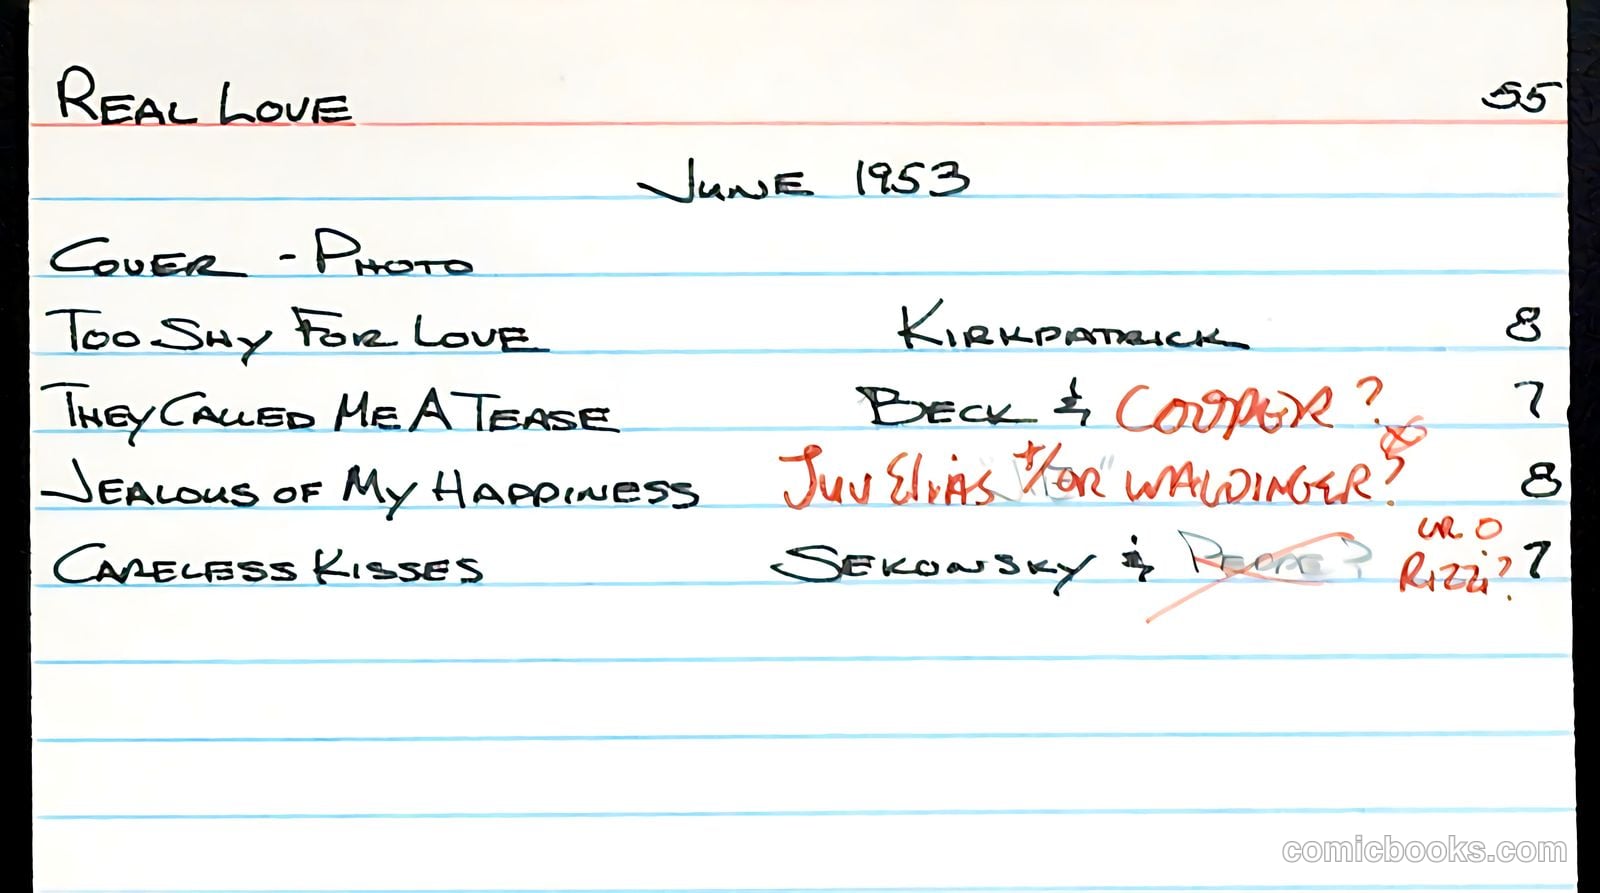 REAL LOVE 55
JUNE 1953
COVER - PHOTO
TOO SHY FOR LOVE KIRKPATRICK 8
THEY CALLED ME A TEASE BECK & COOPER? 7
JEALOUS OF MY HAPPINESS ELIAS +/OR WALDINGER? 8
CARELESS KISSES SEKOWSKY & 7
RIZZI?
comicbooks.com